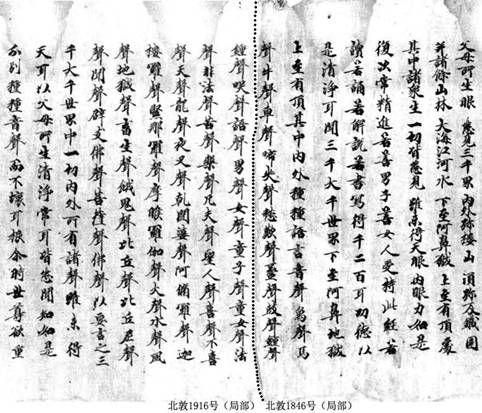 父母所生眼 悉見三千界 內外弥樓山 須弥及鐵圍
并諸餘山林 大海江河水 下至阿鼻獄 上至有頂處
其中諸衆生 一切皆悉見 雖未得天眼 肉眼力如是
復次常精進若善男子善女人受持此經若
讀若誦若解說若書寫得千二百耳功德以
是清淨耳聞三千大千世界下至阿鼻地獄
上至有頂其中內外種種語言音聲象聲馬
聲牛聲車聲啼哭聲愁歎聲螺聲鼓聲鍾聲
聲咲聲語聲男聲女聲童子聲童女聲法
聲非法聲苦聲樂聲凡夫聲聖人聲喜聲不喜
聲天聲龍聲夜叉聲乾闥婆聲阿脩羅聲迦
樓羅聲緊那羅聲摩睺羅伽聲火聲水聲風
聲地獄聲畜生聲餓鬼聲比丘聲比丘尼聲
聲聞聲辟支佛聲菩薩聲佛聲以要言之三
千大千世界中一切內外所有諸聲雖未得
天耳以父母所生清淨常耳皆悉聞知如是
分別種種音聲而不壞耳根尒時世尊欲重
北敦1916号（局部） 北敦1846号（局部）